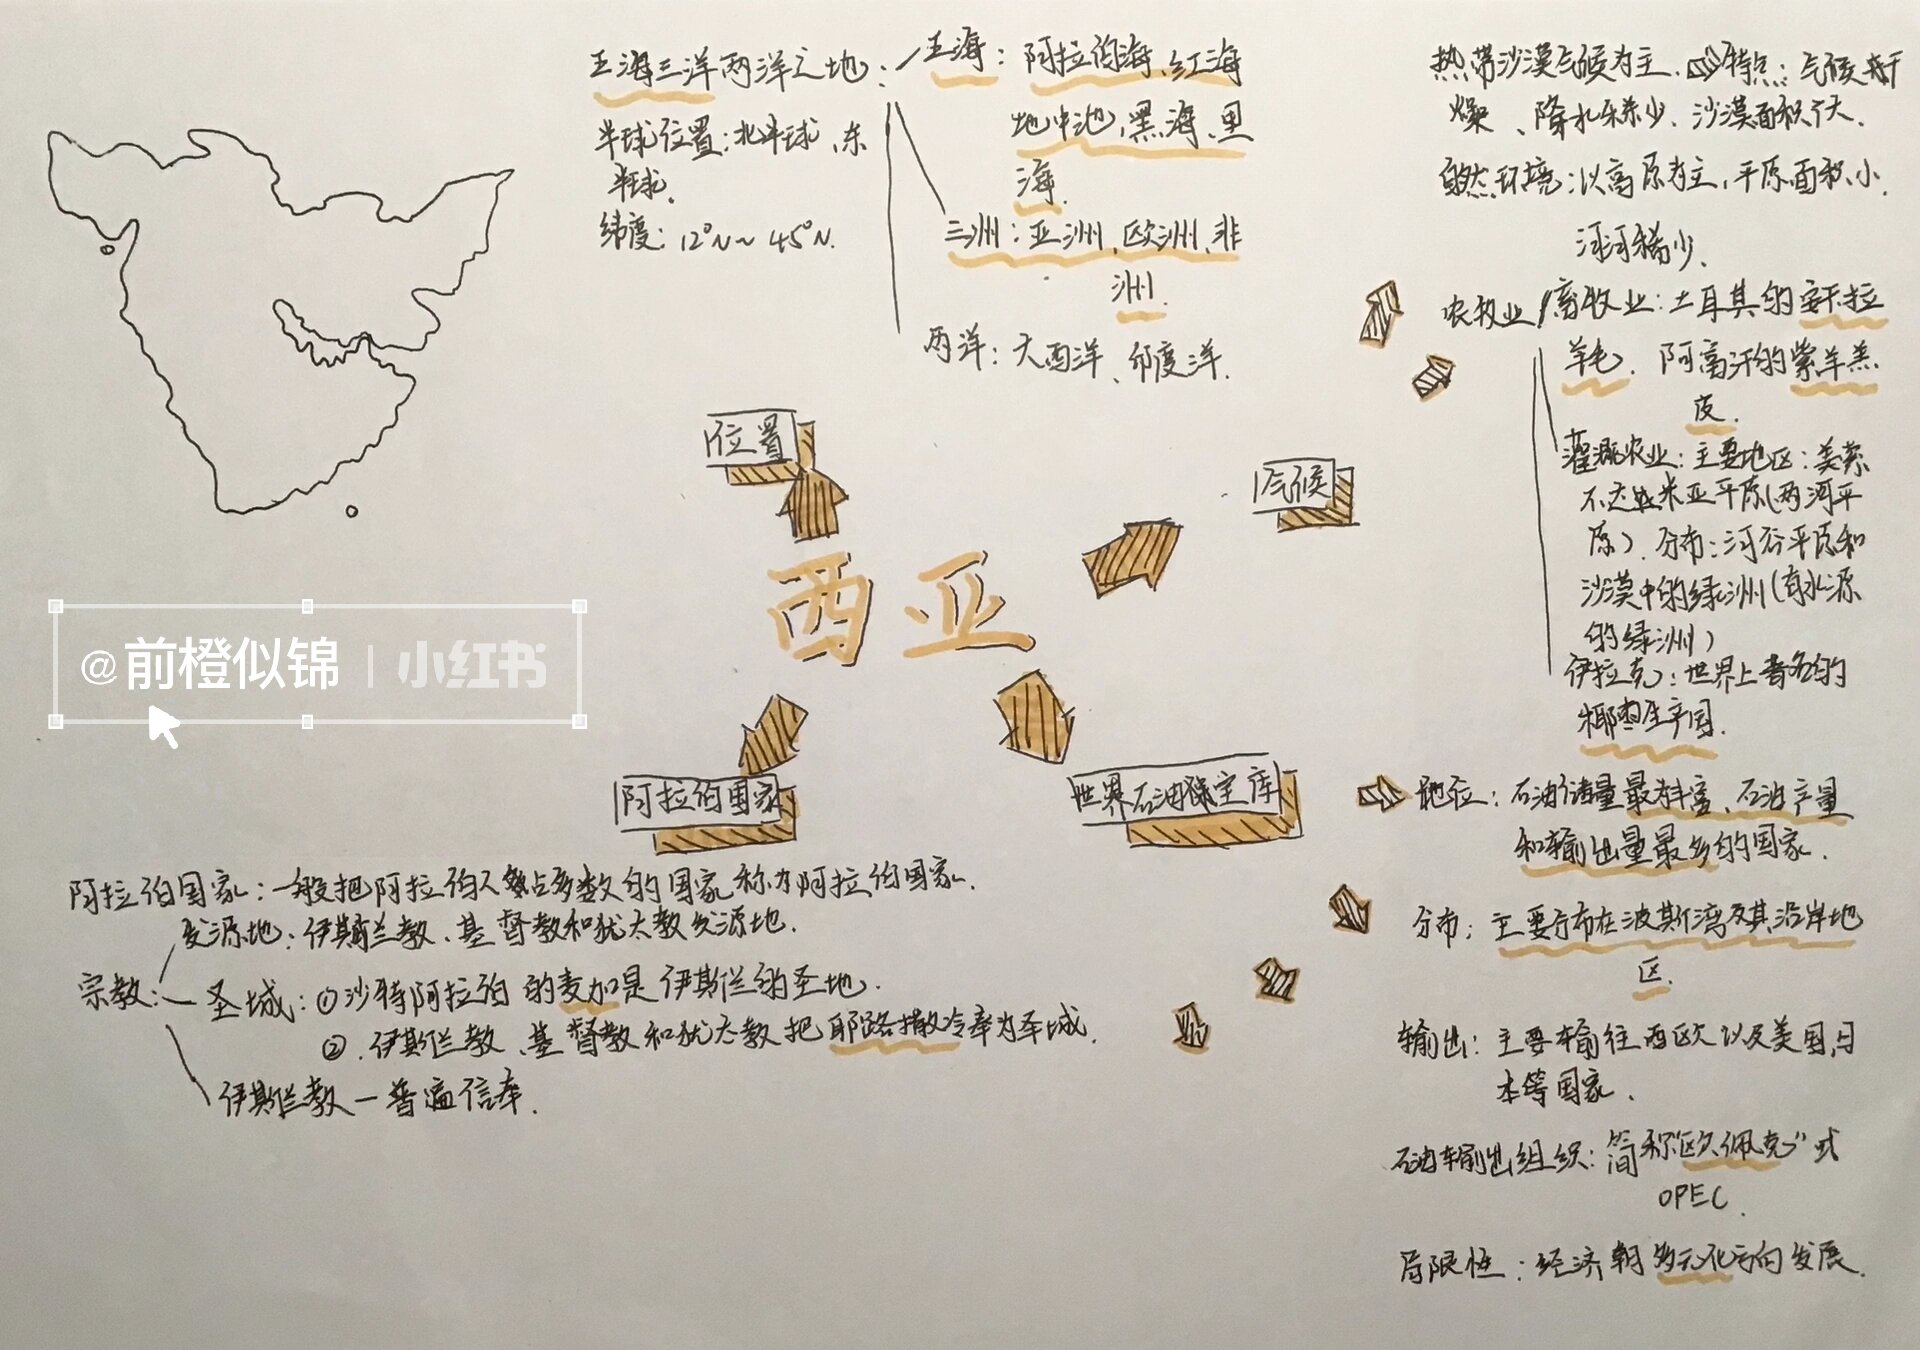 五海三洋两洋之地:
半球位置:北半球、东
半球.
纬度:12°N~45°N.
五海:阿拉伯海、红海
地中池、黑海、里
海.
三洲:亚洲、欧洲、非
洲.
两洋:大西洋、印度洋.
位置
热带沙漠气候为主. 特点:气候干
燥、降水稀少、沙漠面积广大.
自然环境:以高原为主,平原面积小.
河河稀少.
农牧业
畜牧业:土耳其的安卡拉
羊毛. 阿富汗的紫羊羔
皮.
灌溉农业:主要地区:美索
不达米亚平原(两河平
原). 分布:河谷平原和
沙漠中的绿洲(有水源
的绿洲)
伊拉克:世界上著名的
椰枣生产国.
气候
西亚
@前橙似锦 | 小红书
阿拉伯国家
阿拉伯国家:一般把阿拉伯人占多数的国家称为阿拉伯国家.
宗教:
发源地:伊斯兰教、基督教和犹太教发源地.
圣城:①沙特阿拉伯的麦加是伊斯兰的圣地.
②.伊斯兰教、基督教和犹太教把耶路撒冷奉为圣城.
伊斯兰教—普遍信奉.
世界石油宝库
地位:石油储量最丰富、石油产量
和输出量最多的国家.
分布:主要分布在波斯湾及其沿岸地
区.
输出:主要输往西欧以及美国,日
本等国家.
石油输出组织:简称"欧佩克"或
OPEC.
局限性:经济朝多元化方向发展.